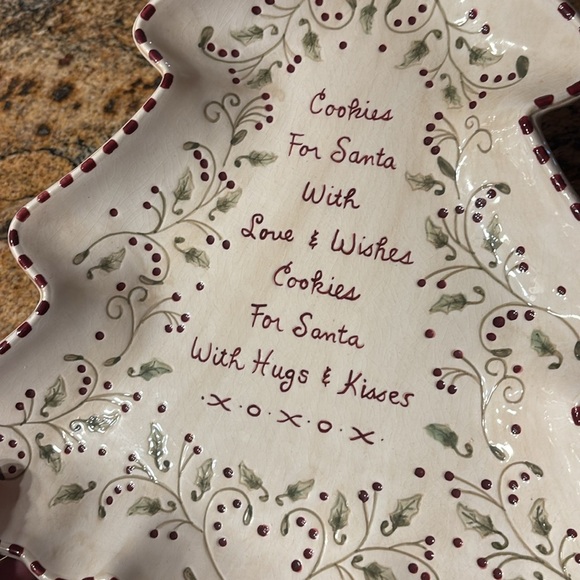 Cookies
For Santa
With
Love & Wishes
Cookies
For Santa
With Hugs & Kisses
·X·O·X·O·X·